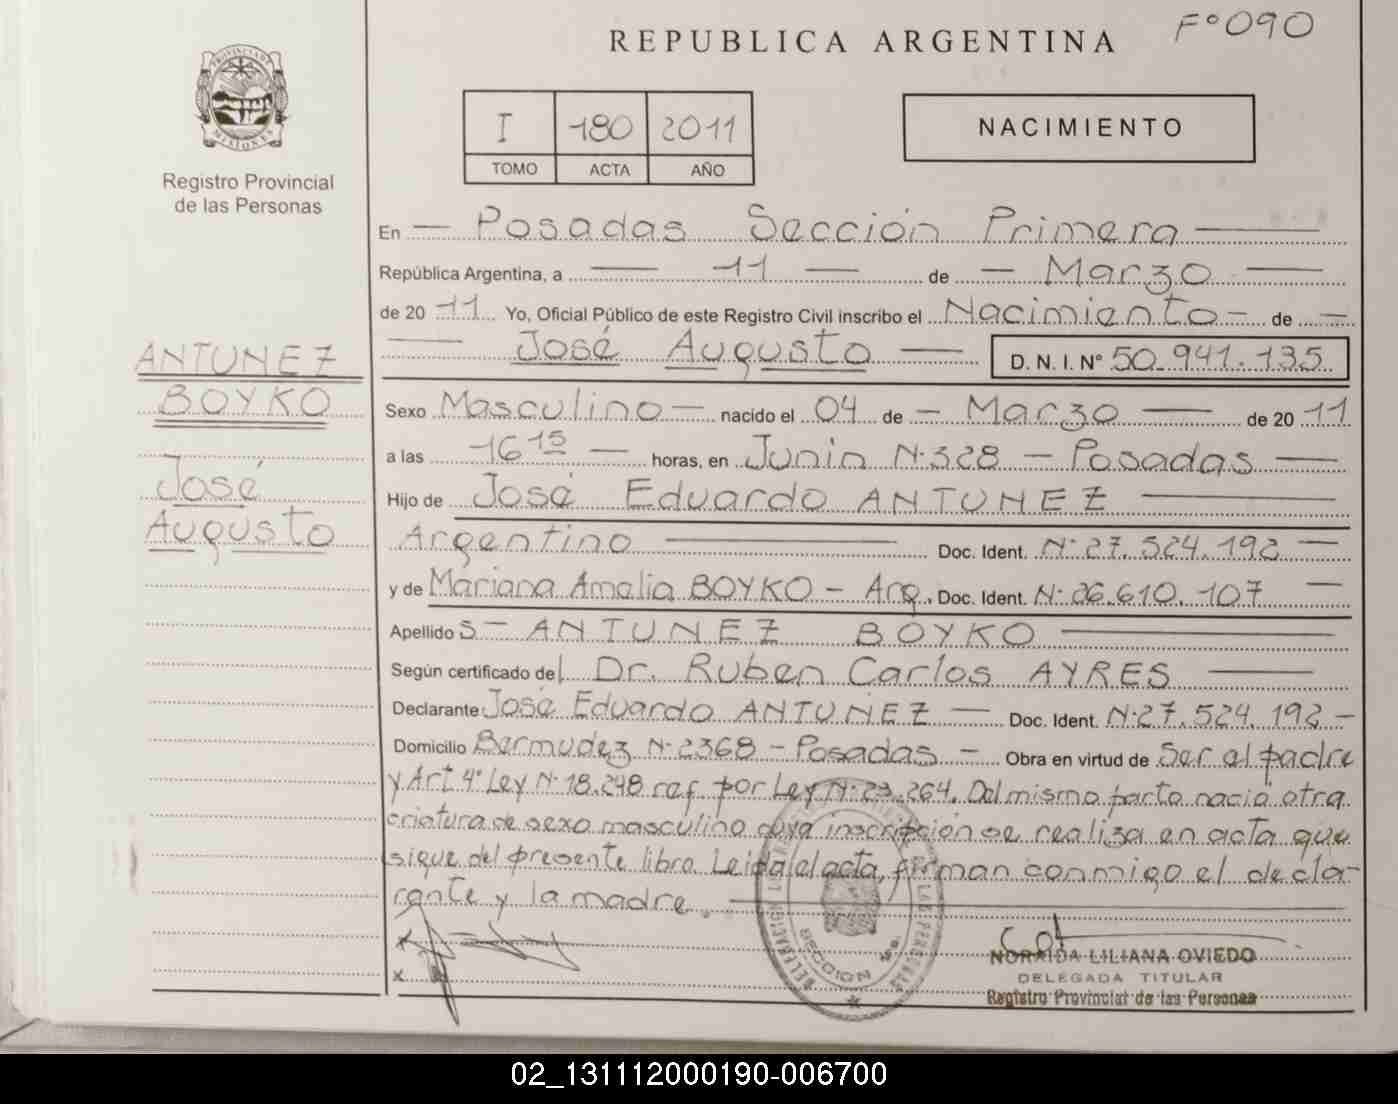 REPUBLICA ARGENTINA
Fº 090
I 180 2011
TOMO ACTA AÑO
NACIMIENTO
PROVINCIA DE MISIONES
Registro Provincial
de las Personas
ANTUNEZ
BOYKO
José
Augusto
En — Posadas Sección Primera —
República Argentina, a — 11 — de — Marzo —
de 20 11 Yo, Oficial Público de este Registro Civil inscribo el Nacimiento — de —
— José Augusto — D. N. I. Nº 50.941.135
Sexo Masculino — nacido el 04 de — Marzo — de 20 11
a las 16 15 — horas, en Junin Nº 328 — Posadas —
Hijo de José Eduardo ANTUNEZ —
Argentino — Doc. Ident. Nº 27.524.192 —
y de Mariana Amalia BOYKO — Arg. Doc. Ident. Nº 26.610.107 —
Apellido s — ANTUNEZ BOYKO —
Según certificado del Dr. Ruben Carlos AYRES —
Declarante José Eduardo ANTUNEZ — Doc. Ident. Nº 27.524.192 —
Domicilio Bermudez Nº 2368 — Posadas — Obra en virtud de Ser el padre
y Art. 4º Ley Nº 18.248 ref. por Ley Nº 23.264. Del mismo parto nació otra
criatura de sexo masculino cuya inscripción se realiza en acta que
sigue del presente libro. Leida el acta, firman conmigo el decla-
rante y la madre. —
x
x
SECCION 1a.
NORAIDA LILIANA OVIEDO
DELEGADA TITULAR
Registro Provincial de las Personas
02_131112000190-006700